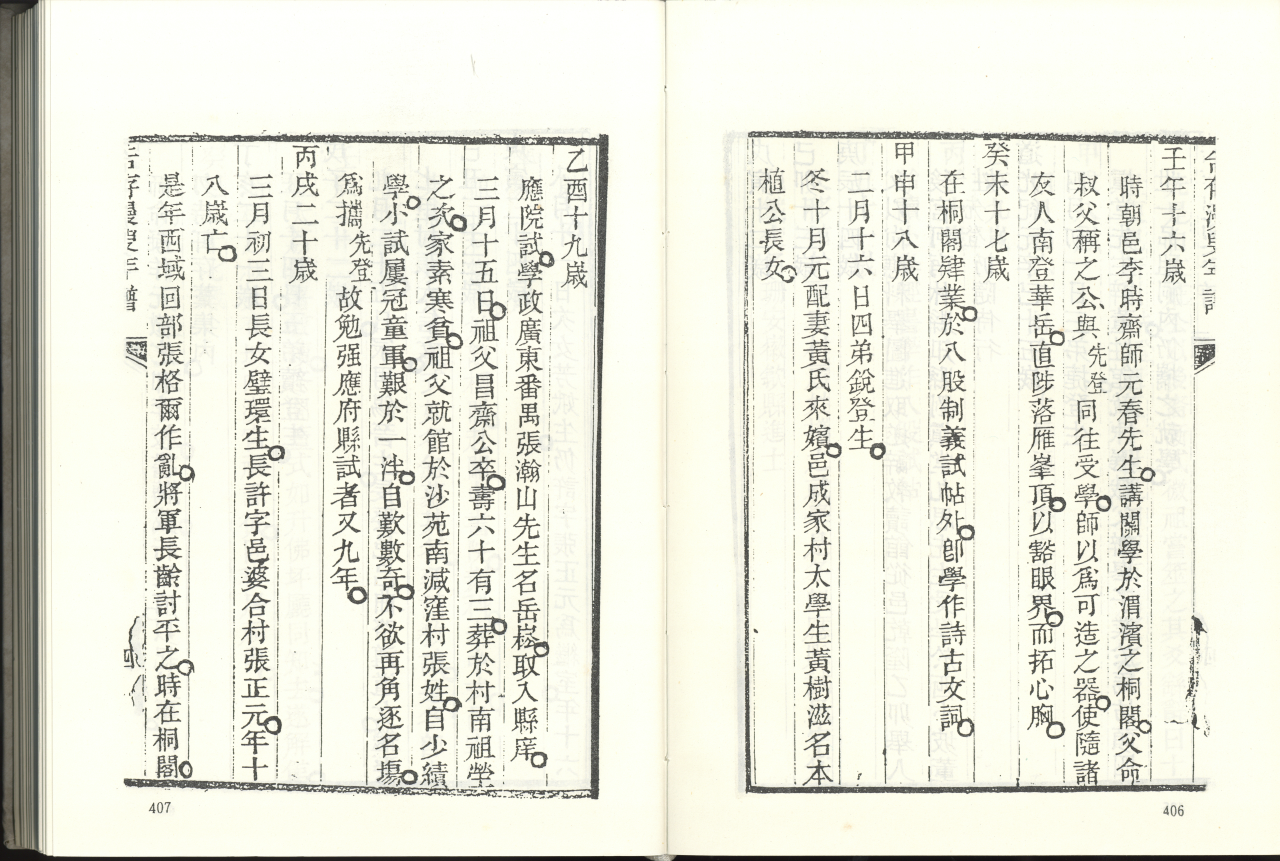 壬午十六歲
時朝邑李時齋師元春先生講關學於渭濱之桐閣父命
叔父稱之公與先登同往受學師以爲可造之器使隨諸
友人南登華岳直陟落雁峯頂以豁眼界而拓心胸
癸未十七歲
在桐閣肄業於八股制義試帖外卽學作詩古文詞
甲申十八歲
二月十六日四弟銳登生
冬十月元配妻黃氏來嬪邑成家村太學生黃樹滋名本
植公長女
406
乙酉十九歲
應院試學政廣東番禺張瀚山先生名岳崧取入縣庠
三月十五日祖父昌齋公卒壽六十有三葬於村南祖塋
之次家素寒貧祖父就館於沙苑南減窪村張姓自少績
學小試屢冠童軍艱於一泮自歎數奇不欲再角逐名場
爲攜先登故勉强應府縣試者又九年
丙戌二十歲
三月初三日長女璧環生長許字邑婆合村張正元年十
八歲亡
是年西域回部張格爾作亂將軍長齡討平之時在桐閣
年譜
407